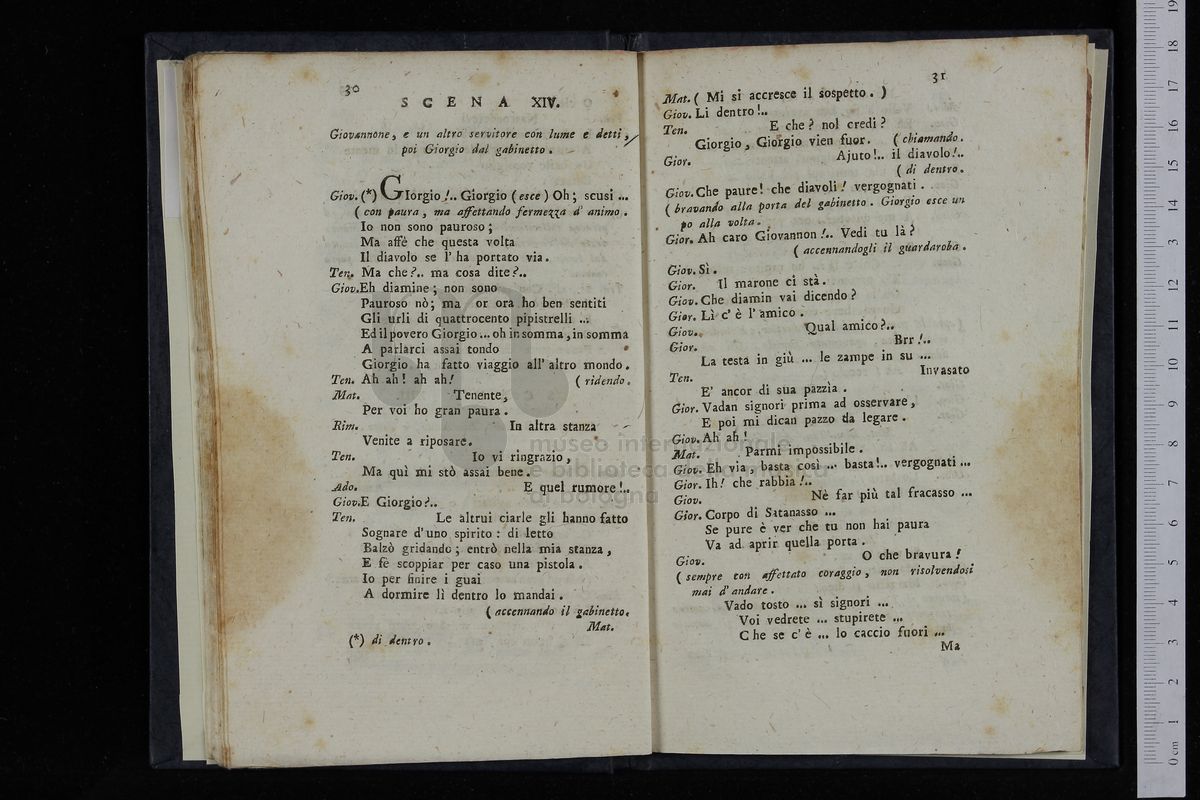 30
SCENA XIV.
Giovannone, e un altro servitore con lume e detti,
poi Giorgio dal gabinetto.
Giov. (*) GIorgio!.. Giorgio (esce) Oh; scusi ...
(con paura, ma affettando fermezza d' animo.
Io non sono pauroso;
Ma affè che questa volta
Il diavolo se l' ha portato via.
Ten. Ma che?.. ma cosa dite?..
Giov.Eh diamine; non sono
Pauroso nò; ma or ora ho ben sentiti
Gli urli di quattrocento pipistrelli ...
Ed il povero Giorgio ... oh in somma, in somma
A parlarci assai tondo
Giorgio ha fatto viaggio all' altro mondo.
Ten. Ah ah! ah ah! (ridendo.
Mat. Tenente,
Per voi ho gran paura.
Rim. In altra stanza
Venite a riposare.
Ten. Io vi ringrazio,
Ma quì mi stò assai bene.
Ado. E quel rumore!..
Giov.E Giorgio?..
Ten. Le altrui ciarle gli hanno fatto
Sognare d' uno spirito: di letto
Balzò gridando; entrò nella mia stanza,
E fè scoppiar per caso una pistola.
Io per finire i guai
A dormire lì dentro lo mandai.
(accennando il gabinetto.
Mat.
(*) di dentro.
31
Mat. (Mi si accresce il sospetto.)
Giov. Lì dentro!..
Ten. E che? nol credi?
Giorgio, Giorgio vien fuor. (chiamando.
Gior. Ajuto!.. il diavolo!..
(di dentro.
Giov. Che paure! che diavoli! vergognati.
(bravando alla porta del gabinetto. Giorgio esce un
po alla volta.
Gior. Ah caro Giovannon!.. Vedi tu là?
(accennandogli il guardaroba.
Giov. Sì.
Gior. Il marone ci stà.
Giov. Che diamin vai dicendo?
Gior. Lì c' è l' amico.
Giov. Qual amico?..
Gior. Brr!..
La testa in giù ... le zampe in su ...
Ten. Invasato
E' ancor di sua pazzìa.
Gior. Vadan signori prima ad osservare,
E poi mi dican pazzo da legare.
Giov. Ah ah!
Mat. Parmi impossibile.
Giov. Eh via, basta così ... basta!.. vergognati ...
Gior. Ih! che rabbia!..
Giov. Nè far più tal fracasso ...
Gior. Corpo di Satanasso ...
Se pure è ver che tu non hai paura
Va ad aprir quella porta.
Giov. O che bravura!
(sempre con affettato coraggio, non risolvendosi
mai d' andare.
Vado tosto ... sì signori ...
Voi vedrete ... stupirete ...
Che se c' è ... lo caccio fuori ...
Ma
museo internazionale
e biblioteca della musica
di bologna
0 cm 1 2 3 4 5 6 7 8 9 10 11 12 13 14 15 16 17 18 19